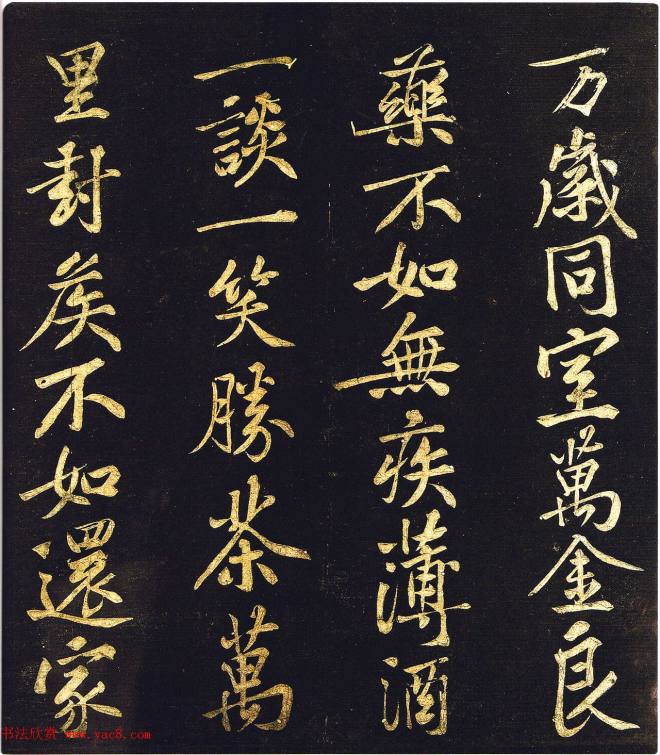 一万歲同室萬金良
藥不如無疾薄酒
一談一笑勝茶萬
里封侯不如還家
书法欣赏 www.yac8.com